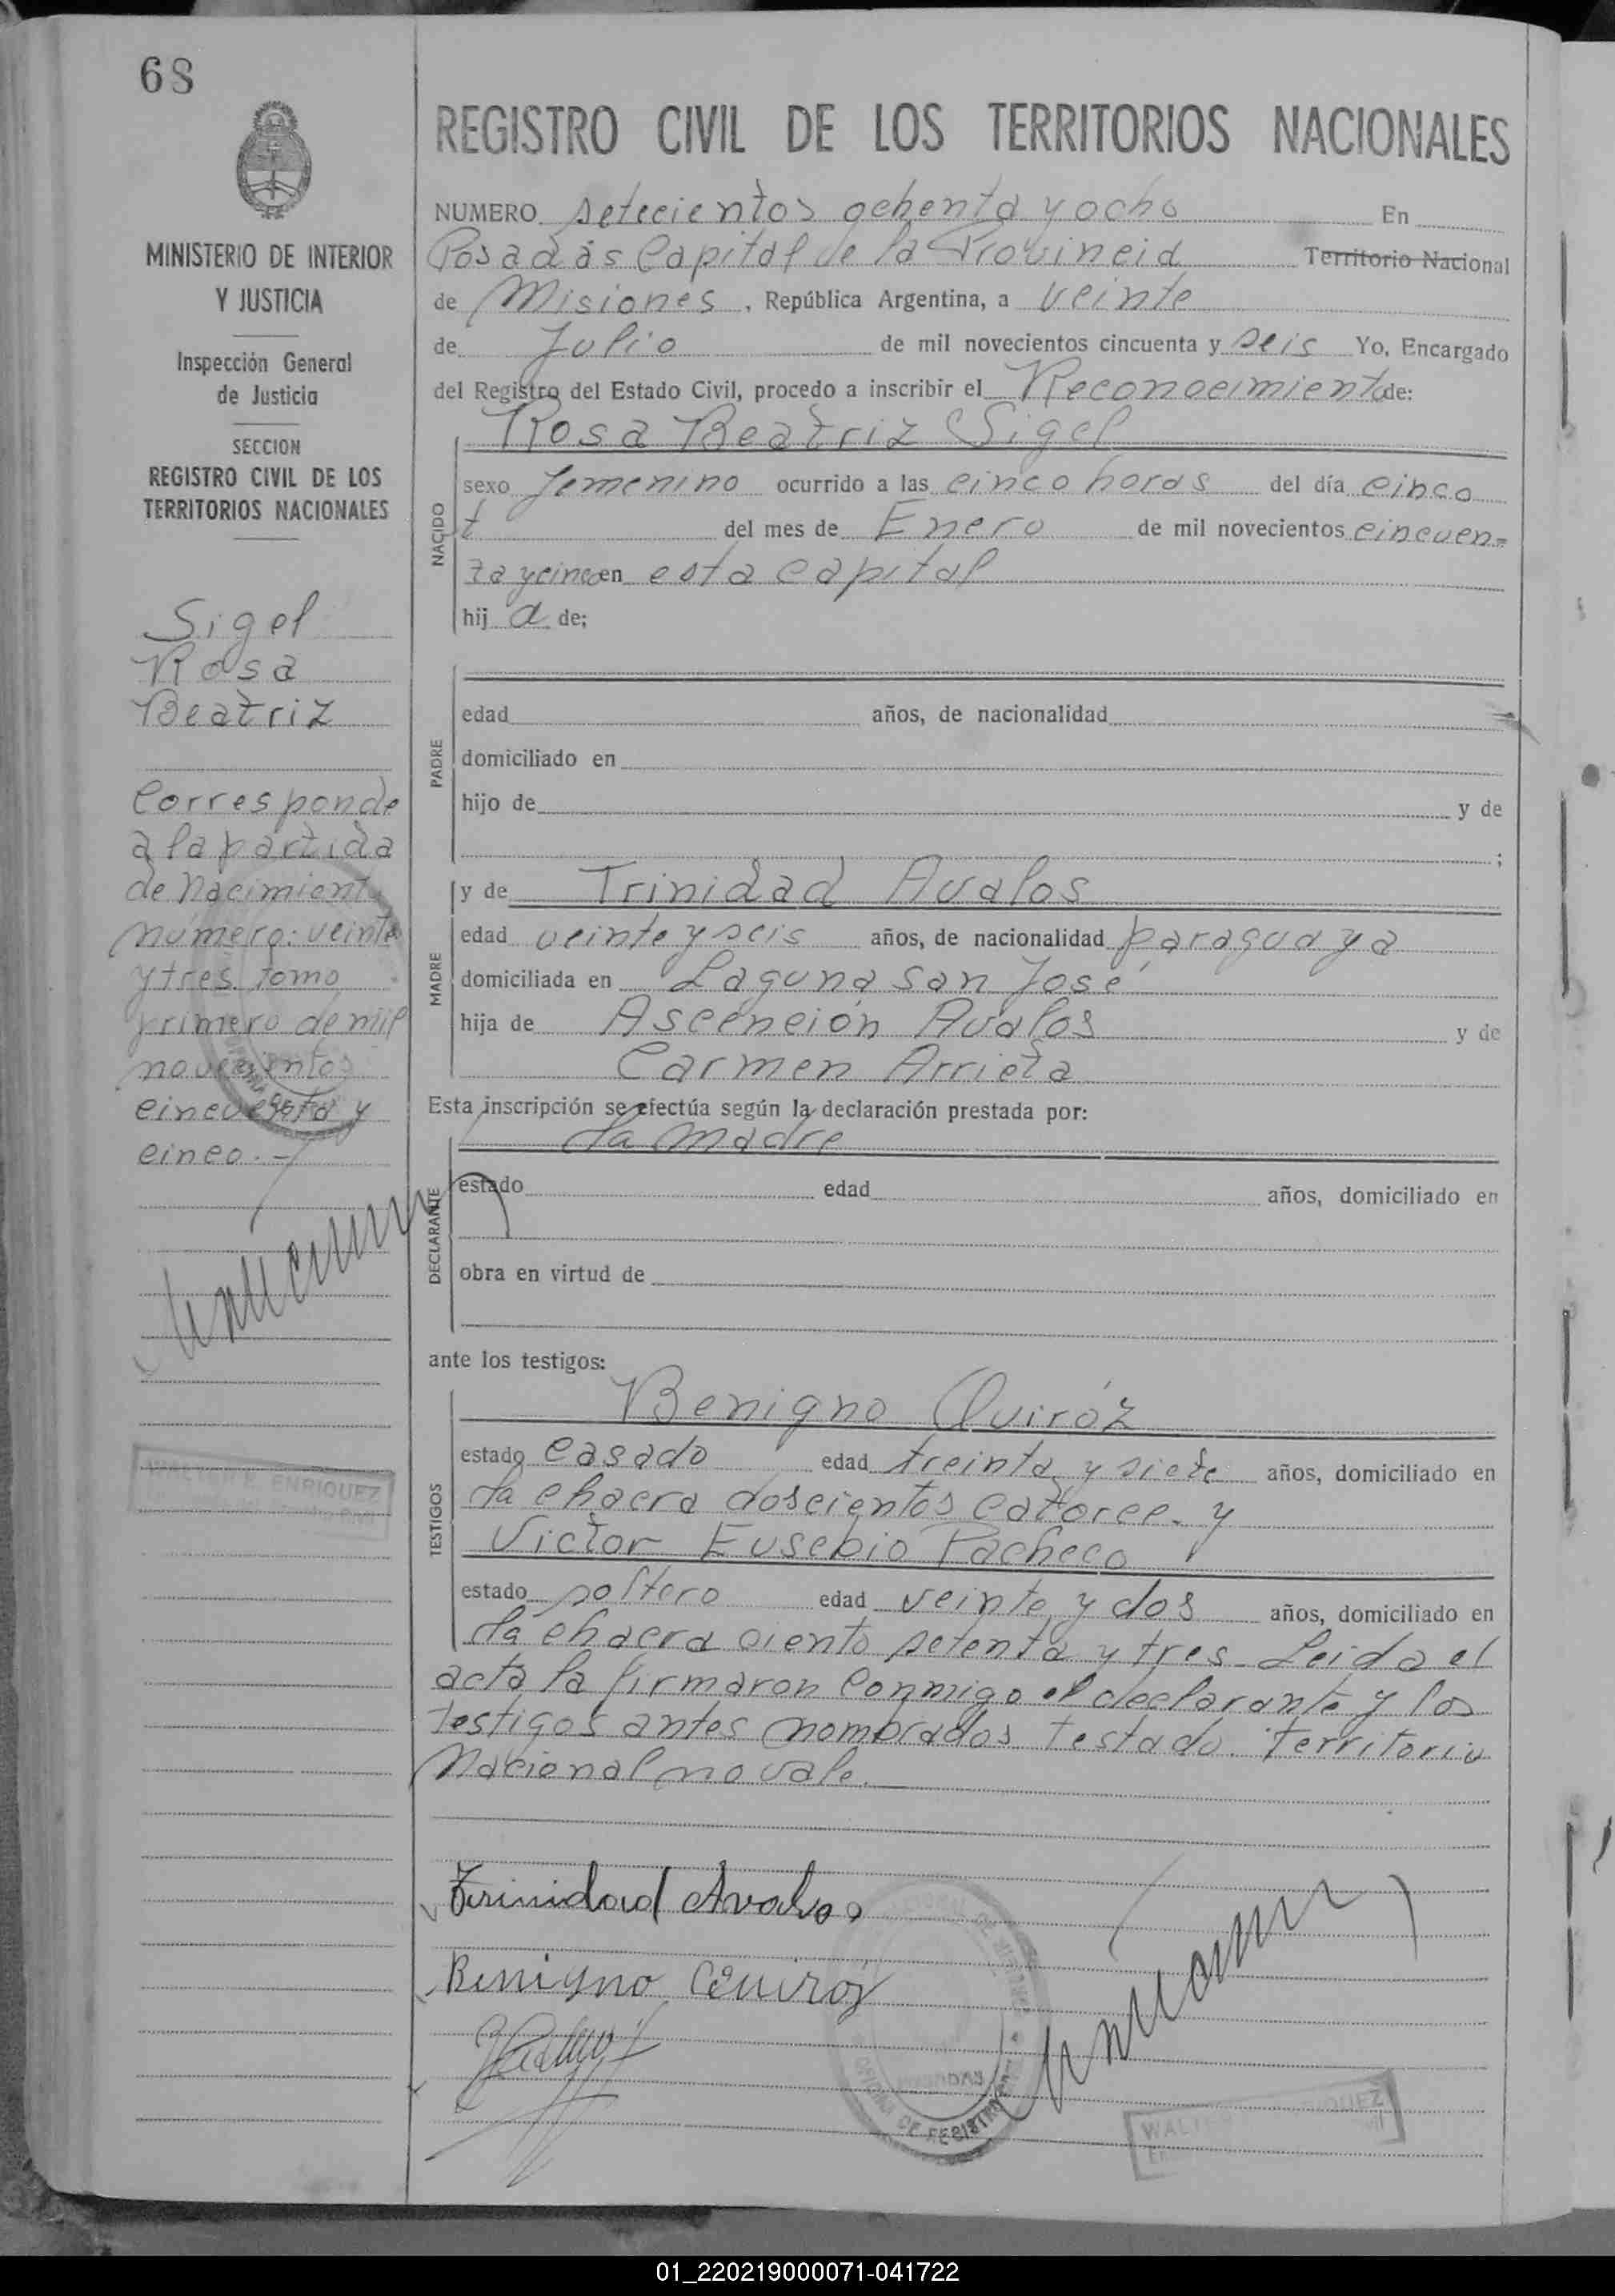 68
MINISTERIO DE INTERIOR
Y JUSTICIA
Inspección General
de Justicia
SECCION
REGISTRO CIVIL DE LOS
TERRITORIOS NACIONALES
Sigel
Rosa
Beatriz
Corresponde
a la partida
de Nacimiento
número: veinte
y tres tomo
primero de mil
novecientos
cincuenta y
cinco.-
WALTER E. ENRIQUEZ
REGISTRO CIVIL DE LOS TERRITORIOS NACIONALES
NUMERO setecientos ochenta y ocho En
Posadas Capital de la Provincia Territorio Nacional
de Misiones, República Argentina, a veinte
de Julio de mil novecientos cincuenta y seis Yo, Encargado
del Registro del Estado Civil, procedo a inscribir el Reconocimiento de:
Rosa Beatriz Sigel
NACIDO
sexo femenino ocurrido a las cinco horas del día cinco
del mes de Enero de mil novecientos cincuen=
ta y cinco en esta capital
hij a de;
PADRE
edad años, de nacionalidad
domiciliado en
hijo de y de
;
MADRE
y de Trinidad Avalos
edad veinte y seis años, de nacionalidad paraguaya
domiciliada en Laguna San José
hija de Ascención Avalos y de
Carmen Arrieta
Esta inscripción se efectúa según la declaración prestada por:
la madre
DECLARANTE
estado edad años, domiciliado en
obra en virtud de
ante los testigos:
TESTIGOS
Benigno Quiróz
estado casado edad treinta y siete años, domiciliado en
la chacra doscientos catorce. y
Victor Eusebio Pacheco
estado soltero edad veinte y dos años, domiciliado en
la chacra ciento setenta y tres. Leida el
acta la firmaron conmigo el declarante y los
testigos antes nombrados. Testado. Territorio
Nacional no vale.
Trinidad Avalos
Benigno Quiroz
OFICINA DE REGISTRO
01_220219000071-041722